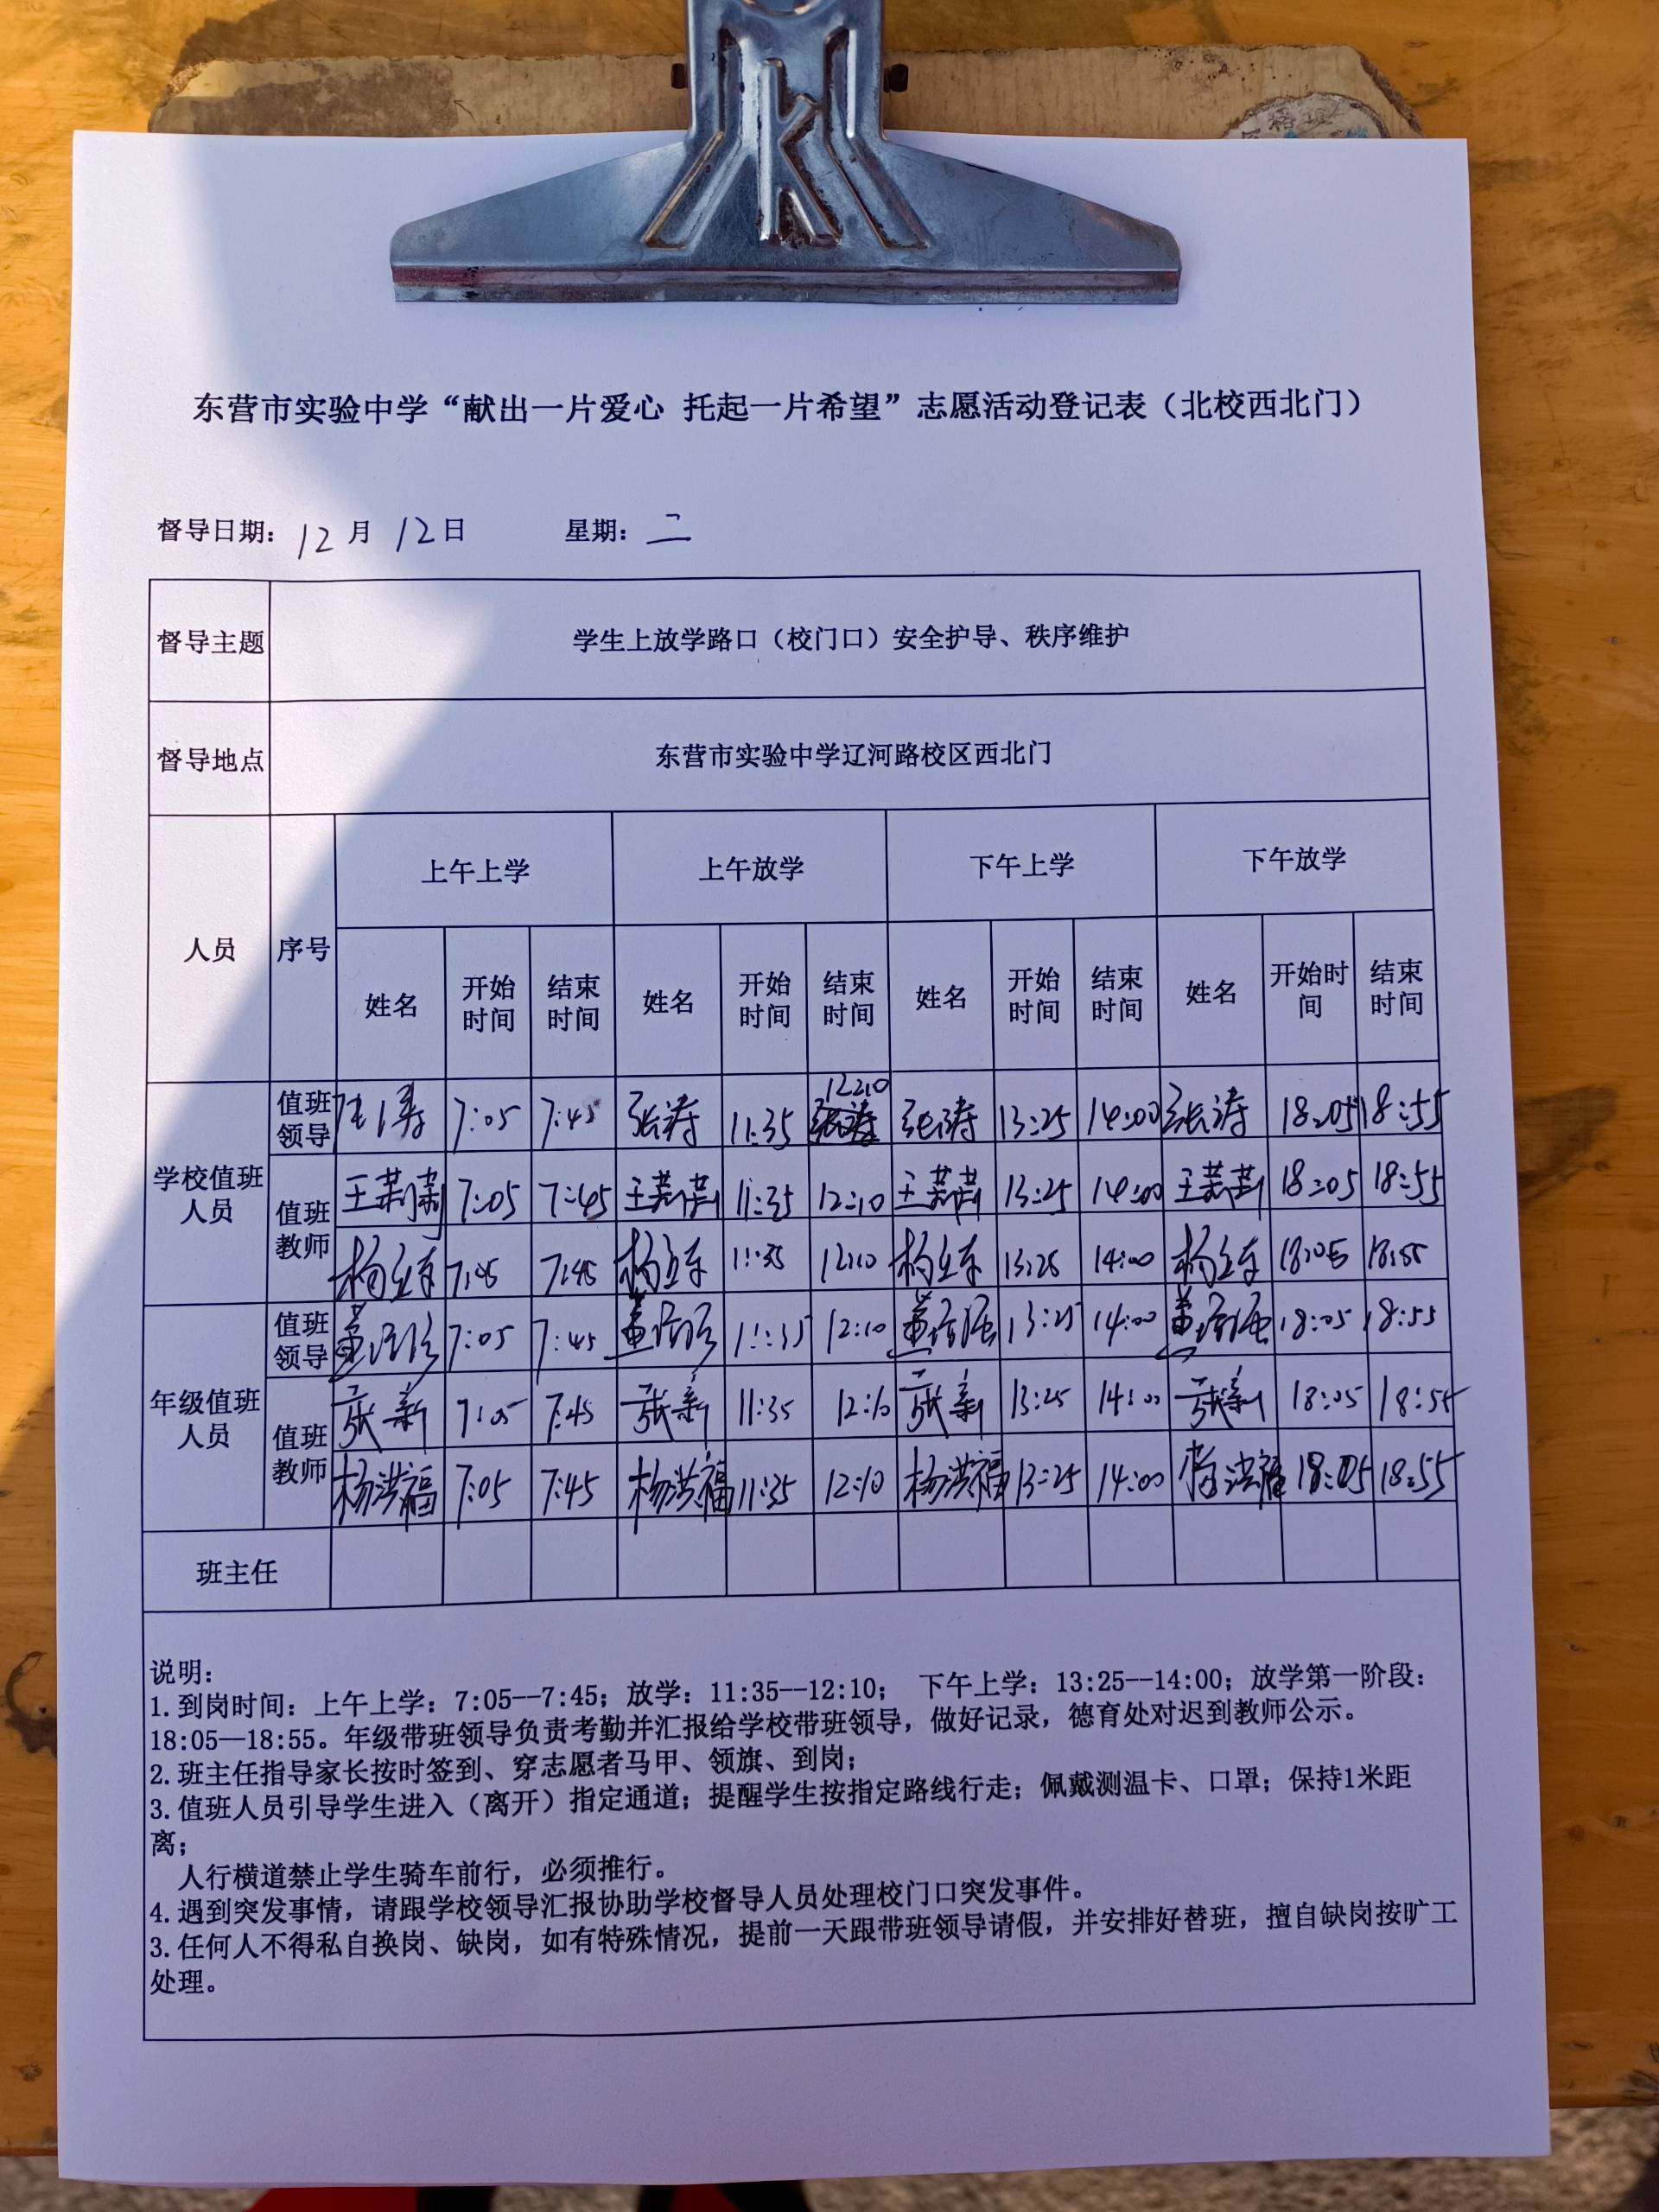 东营市实验中学“献出一片爱心 托起一片希望”志愿活动登记表（北校西北门）
督导日期： 12 月 12 日 星期： 二
督导主题 学生上放学路口（校门口）安全护导、秩序维护
督导地点 东营市实验中学辽河路校区西北门
人员 序号 上午上学 上午放学 下午上学 下午放学
姓名 开始时间 结束时间 姓名 开始时间 结束时间 姓名 开始时间 结束时间 姓名 开始时间 结束时间
学校值班人员 值班领导 7:05 7:45 张涛 11:35 12:10 张涛 13:25 14:00 张涛 18:05 18:55
值班教师 7:05 7:45 11:35 12:10 13:25 14:00 18:05 18:55
7:45 11:35 12:10 13:25 14:00 18:05 18:55
年级值班人员 值班领导 7:05 7:45 11:35 12:10 13:25 14:00 18:05 18:55
值班教师 张新 7:05 7:45 张新 11:35 12:10 张新 13:25 14:00 张新 18:05 18:55
杨洪福 7:05 7:45 杨洪福 11:35 12:10 杨洪福 13:25 14:00 杨洪福 18:05 18:55
班主任
说明：
1.到岗时间：上午上学：7:05--7:45；放学：11:35--12:10； 下午上学：13:25--14:00；放学第一阶段：
18:05--18:55。年级带班领导负责考勤并汇报给学校带班领导，做好记录，德育处对迟到教师公示。
2.班主任指导家长按时签到、穿志愿者马甲、领旗、到岗；
3.值班人员引导学生进入（离开）指定通道；提醒学生按指定路线行走；佩戴测温卡、口罩；保持1米距
离；
人行横道禁止学生骑车前行，必须推行。
4.遇到突发事情，请跟学校领导汇报协助学校督导人员处理校门口突发事件。
3.任何人不得私自换岗、缺岗，如有特殊情况，提前一天跟带班领导请假，并安排好替班，擅自缺岗按旷工
处理。